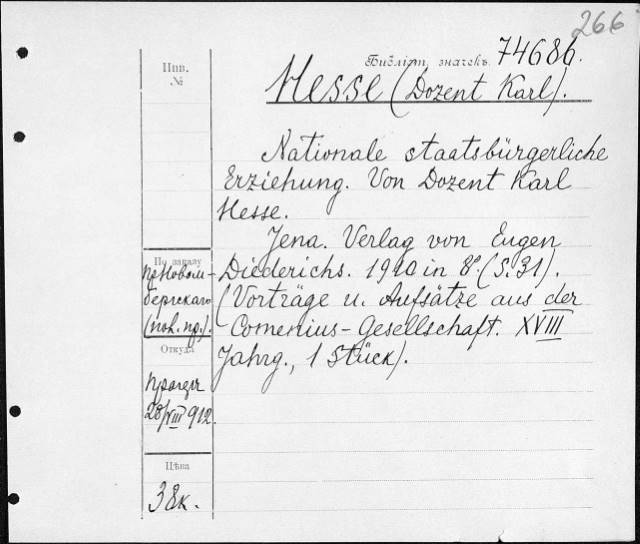 266
Инв. №
Библіот. значекъ 74686.
Hesse (Dozent Karl).
Nationale staatsbürgerliche
Erziehung. Von Dozent Karl
Hesse.
Jena. Verlag von Eugen
Diederichs. 1910 in 8° (S. 31).
(Vorträge u. Aufsätze aus der
Comenius-Gesellschaft. XVIII
Jahrg., 1 Stück).
По заказу
пр Новом-
бергскаго
(пок. пр.).
Откуда
28/VIII 912.
Цѣна
38к.